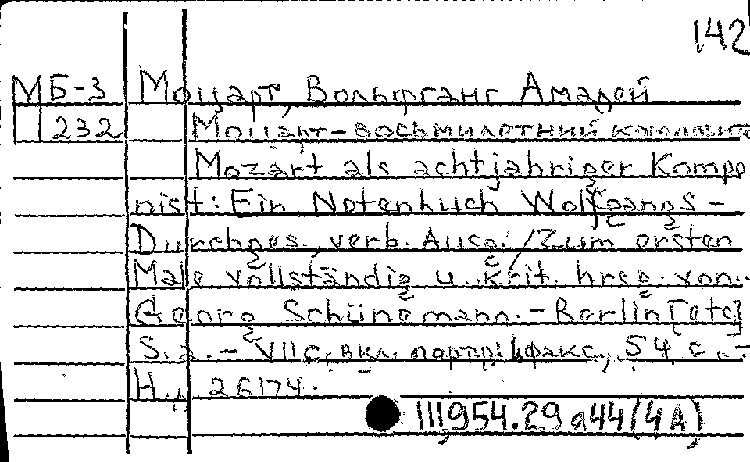 142
МБ-3 Моцарт, Вольфганг Амадей
232 Моцарт-восьмилетний композито
Mozart als achtjähriger Kompo
nist: Ein Notenbuch Wolfgangs -
Durchges., verb. Ausg. / Zum ersten
Male vollständig u. krit. hrsg. von
Georg Schünemann. - Berlin [etc]
S. a. - VII с. вкл. портр., факс., 54 с. -
Н. д. 26174.
III,954.29 a44(4A)